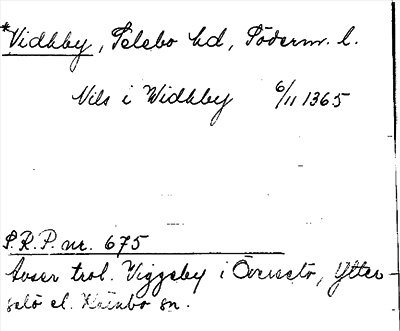 *Vidhby, Selebo hd, Söderm. l.
Nils i Widhby 6/11 1365
S.R.P. nr. 675
Avser trol. Viggeby i Överselö, Ytter-
selö el. Kärnbo sn.